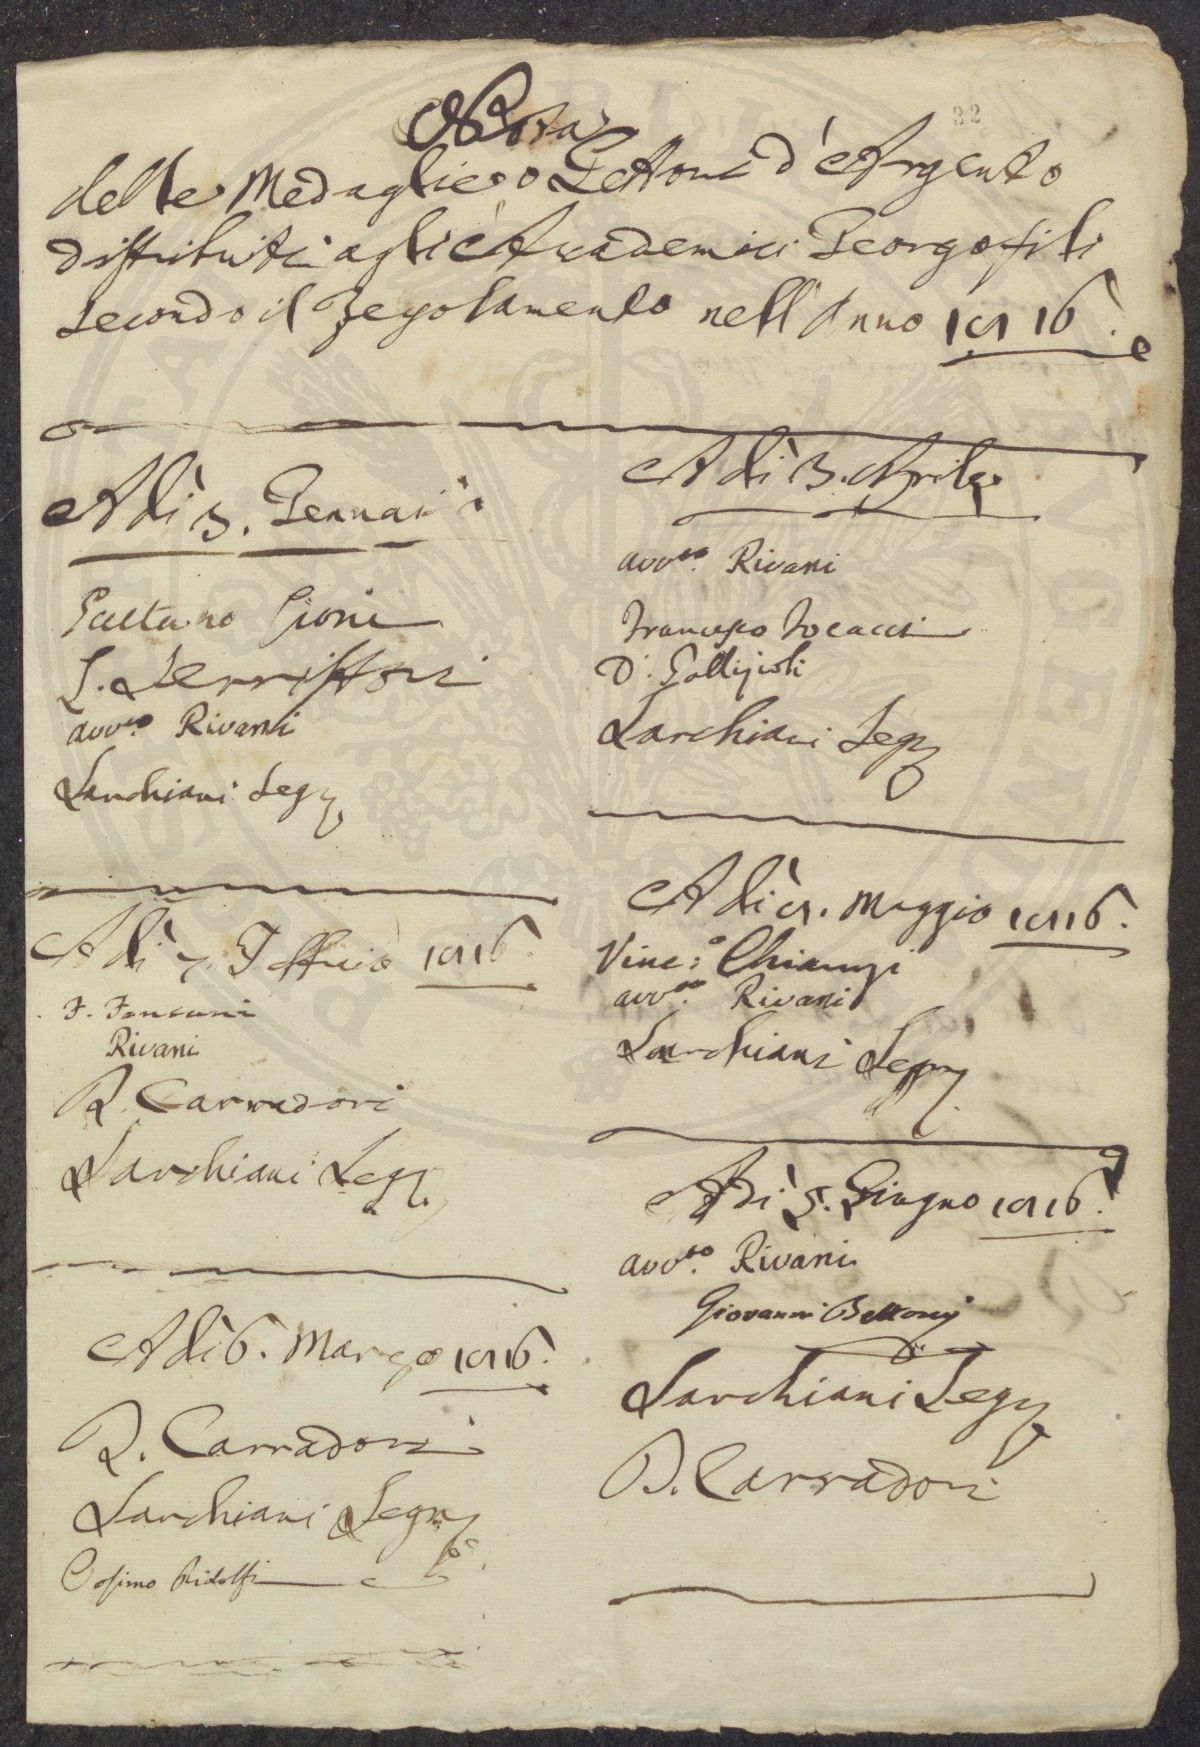 Nota
delle Medaglie o Gettoni d'Argento
distribuiti agli Accademici Georgofili
secondo il Regolamento nell'Anno 1816.
32
A dì 3. Gennaio
Gaetano Cioni
avv.to Rivani
Sarchiani Seg.
A dì 7. Febbraio 1816.
F. Fontani
Rivani
R. Carradori
Sarchiani Seg.
A dì 6. Marzo 1816.
R. Carradori
Sarchiani Seg.
Cosimo Ridolfi
A dì 3. Aprile
avv.to Rivani
Francesco Focacci
D. Gallizioli
Sarchiani Seg.
A dì 8. Maggio 1816.
Vinc.o Chiarugi
avv.to Rivani
Sarchiani Seg.
A dì 5. Giugno 1816.
avv.to Rivani
Giovanni Bettoni
Sarchiani Seg.
Carradori